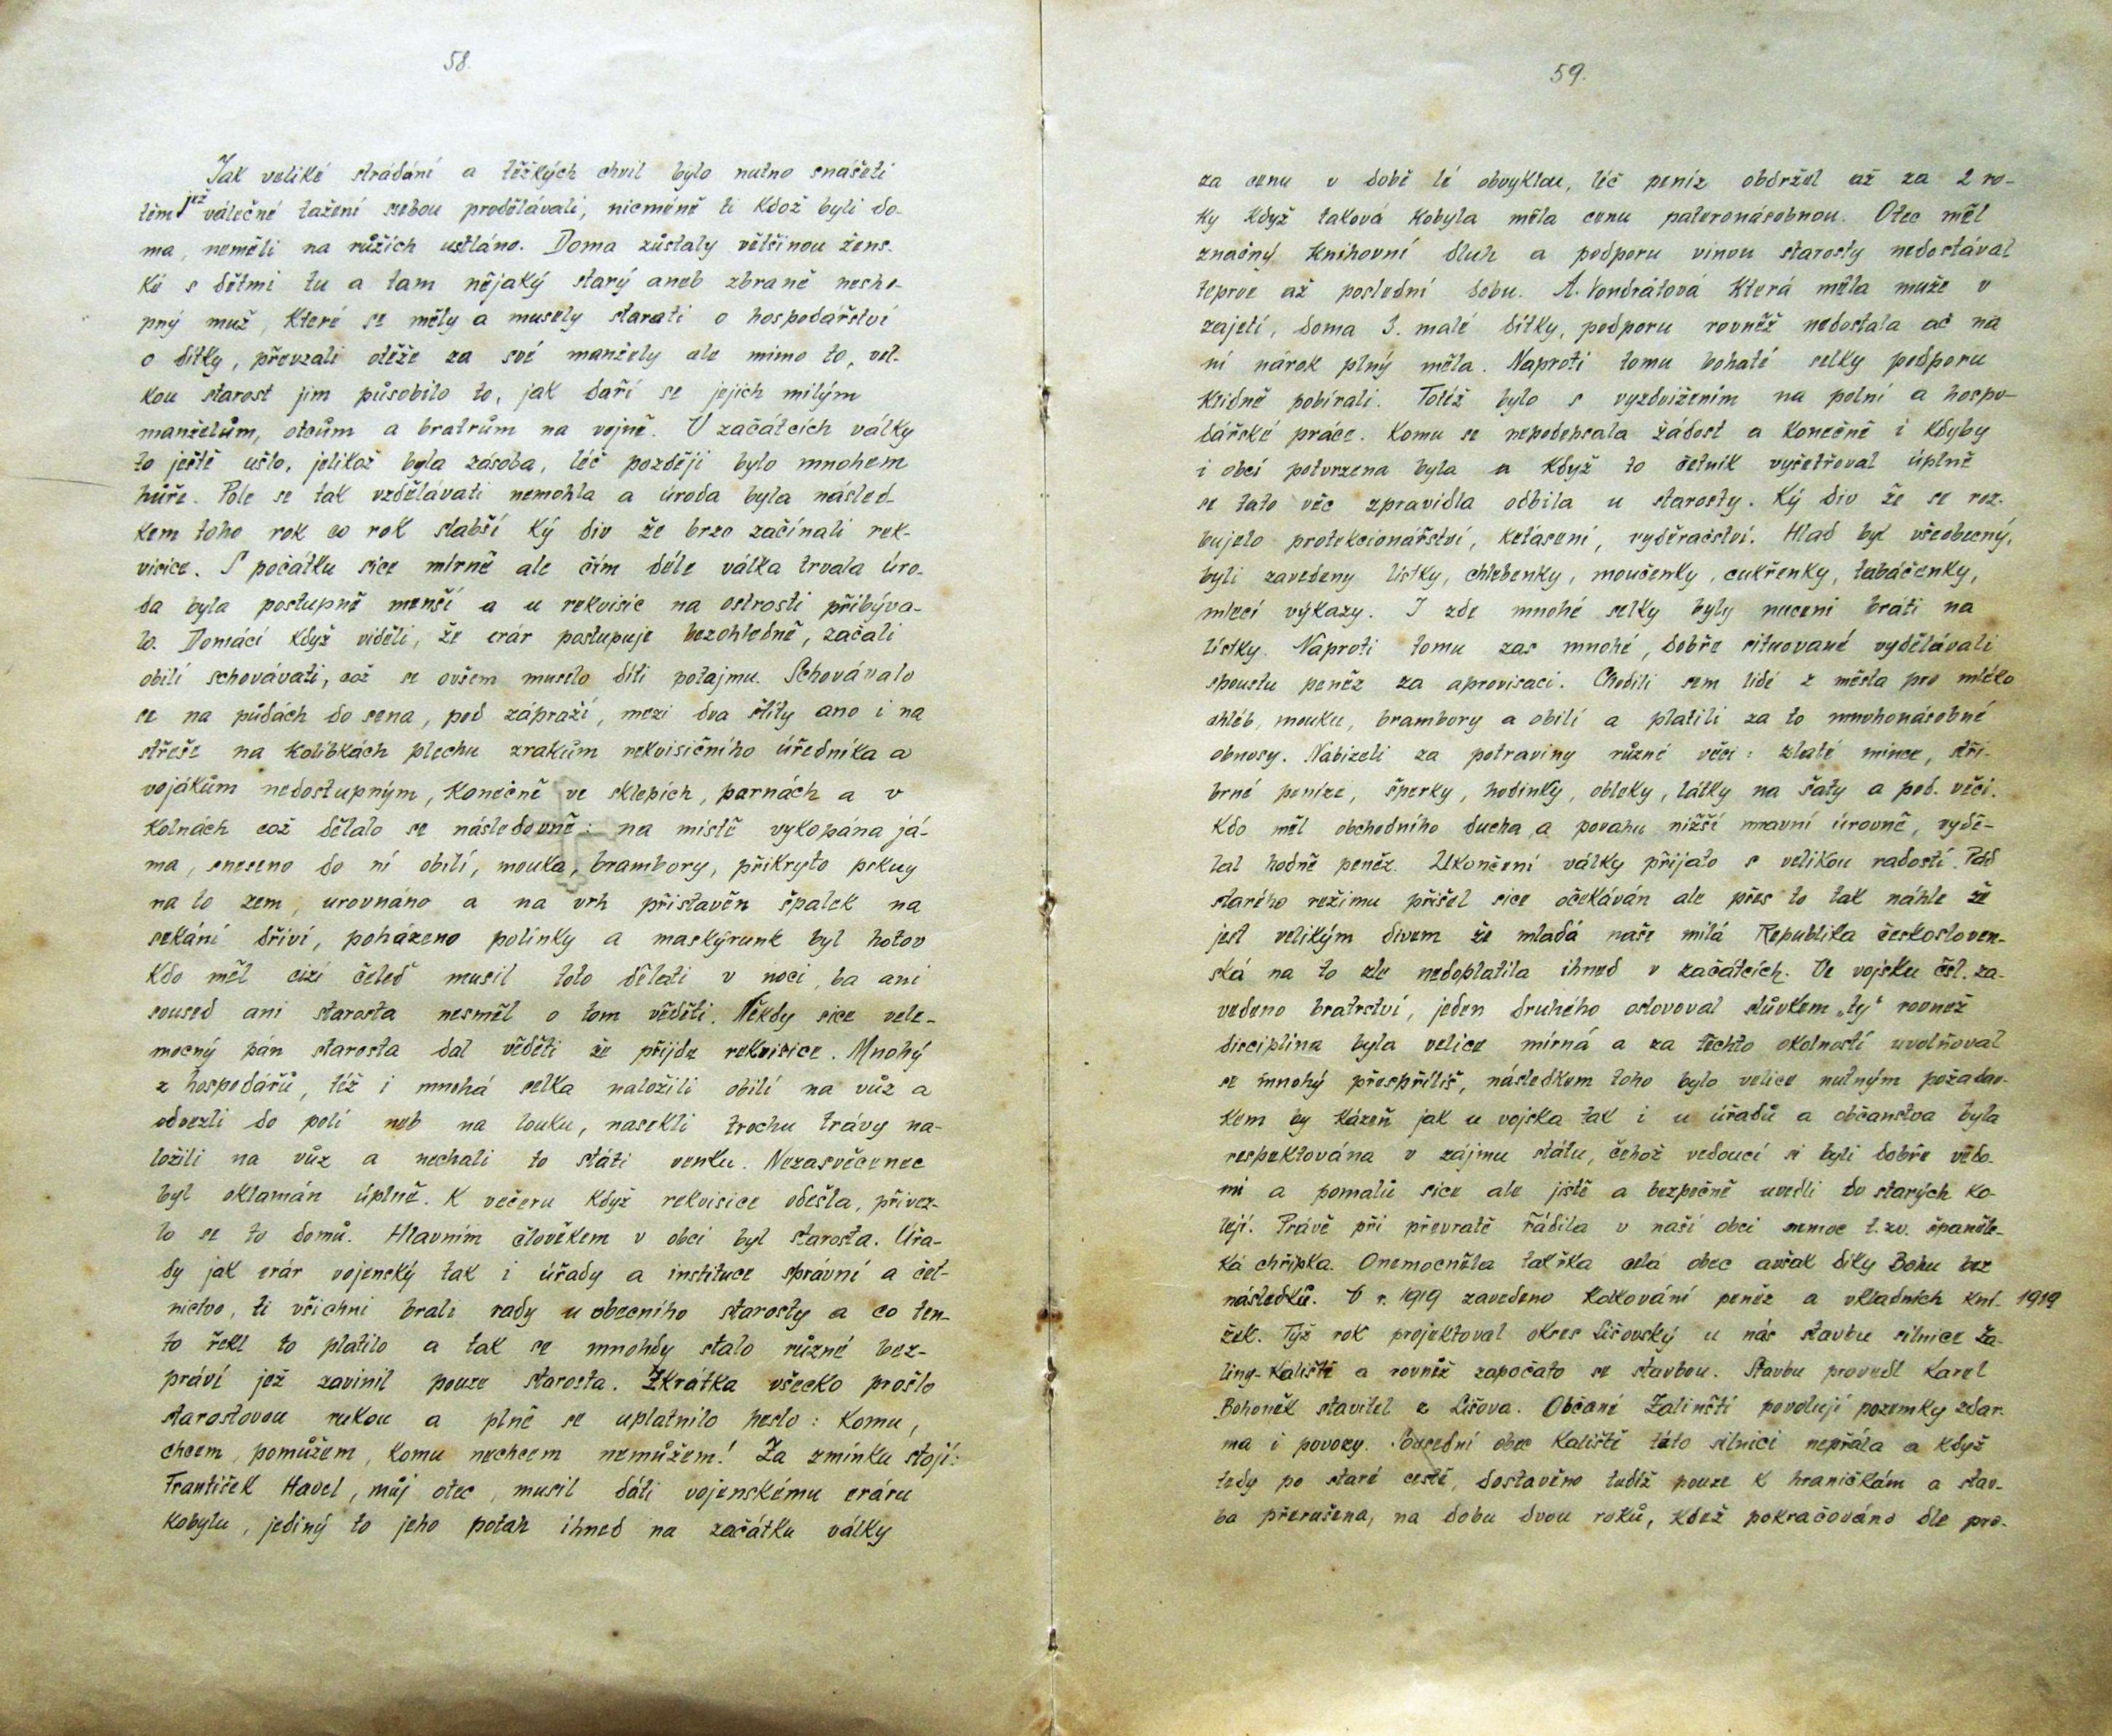 58.
Jak veliké strádání a těžkých chvil bylo nutno snášeti
těm jež válečné tažení sebou prodělávali, nicméně ti kdož byli do-
ma, neměli na růžích ustláno. Doma zůstaly většinou žens-
ké s dětmi tu a tam nějaký starý aneb zbraně nescho-
pný muž, které se měly a musely starati o hospodářství
o dítky, převzali otěže za své manžely ale mimo to, vel-
kou starost jim působilo to, jak daří se jejich milým
manželům, otcům a bratrům na vojně. V začátcích války
to ještě ušlo, jelikož byla zásoba, léč později bylo mnohem
hůře. Pole se tak vzdělávati nemohla a úroda byla násled-
kem toho rok co rok slabší ký div že brzo začínali rek-
visice. S počátku sice mírně ale čím déle válka trvala úro-
da byla postupně menší a u rekvisic na ostrosti přibýva-
lo. Domácí když viděli, že erár postupuje bezohledně, začali
obilí schovávati, což se ovšem muselo díti potajmu. Schovávalo
se na půdách do sena, pod zápraží, mezi dva štíty ano i na
střeše na kolíbkách plechu zrakům rekvisičního úředníka a
vojákům nedostupným, konečně ve sklepích, parnách a v
kolnách což dělalo se následovně: na místě vykopána já-
ma, sneseno do ní obilí, mouka, brambory, přikryto prkny
na to zem, urovnáno a na vrh přistavěn špalek na
sekání dříví, poházeno polínky a maskýrunk byl hotov
Kdo měl cizí čeleď musil toto dělati v noci, ba ani
soused ani starosta nesměl o tom věděti. Někdy sice vele-
mocný pán starosta dal věděti že přijde rekvisice. Mnohý
z hospodářů, též i mnohá selka naložili obilí na vůz a
odvezli do polí neb na louku, nasekli trochu trávy na-
ložili na vůz a nechali to státi venku. Nezasvěcenec
byl oklamán úplně. K večeru když rekvisice odešla, přivez-
lo se to domů. Hlavním člověkem v obci byl starosta. Úřa-
dy jak erár vojenský tak i úřady a instituce správní a čet-
nictvo, ti všichni brali rady u obecního starosty a co ten-
to řekl to platilo a tak se mnohdy stalo různé bez-
práví jež zavinil pouze starosta. Zkrátka všecko prošlo
starostovou rukou a plně se uplatnilo heslo: Komu,
chcem, pomůžem, komu nechcem nemůžem! Za zmínku stojí:
František Havel, můj otec, musil dáti vojenskému eráru
kobylu, jediný to jeho potah ihned na začátku války
59.
za cenu v době té obvyklou, léč peníz obdržel až za 2 ro-
ky když taková kobyla měla cenu pateronásobnou. Otec měl
značný knihovní dluh a podporu vinou starosty nedostával
teprve až poslední dobu. A. Vondrátová která měla muže v
zajetí, doma 3. malé dítky, podporu rovněž nedostala ač na
ní nárok plný měla. Naproti tomu bohaté selky podporu
klidně pobírali. Totéž bylo s vyzdvižením na polní a hospo-
dářské práce. Komu se nepodepsala žádost a konečně i kdyby
i obcí potvrzena byla a když to četník vyšetřoval úplně
se tato věc zpravidla odbila u starosty. Ký div že se roz-
bujelo protekcionářství, keťasení, vyděračství. Hlad byl všeobecný,
byli zavedeny lístky, chlebenky, moučenky, cukřenky, tabáčenky,
mlecí výkazy. I zde mnohé selky byly nuceni bráti na
lístky. Naproti tomu zas mnohé, dobře situované vydělávali
spoustu peněz za aprovisaci. Chodili sem lidé z města pro mléko
chléb, mouku, brambory a obilí a platili za to mnohonásobné
obnosy. Nabízeli za potraviny různé věci: zlaté mince, stří-
brné peníze, šperky, hodinky, obleky, látky na šaty a pod. věci.
Kdo měl obchodního ducha a povahu nižší mravní úrovně, vydě-
lal hodně peněz. Ukončení války přijato s velikou radostí. Pád
starého režimu přišel sice očekáván ale přes to tak náhle že
jest velikým divem že mladá naše milá Republika českosloven-
ská na to zle nedoplatila ihned v začátcích. Ve vojsku čsl. za-
vedeno bratrství, jeden druhého oslovoval slůvkem „ty" rovnež
disciplina byla velice mírná a za těchto okolností uvolňoval
se mnohý přespříliš, následkem toho bylo velice nutným požadav-
kem by kázeň jak u vojska tak i u úřadů a občanstva byla
respektována v zájmu státu, čehož vedoucí si byli dobře vědo-
mi a pomalů sice ale jistě a bezpečně uvedli do starých ko-
lejí. Právě při převratě řádila v naší obci nemoc t.zv. španěls-
ká chřipka. Onemocněla takřka celá obec avšak díky Bohu bez
následků. V r. 1919 zavedeno kolkování peněz a vkladních kní- 1919
žek. Týž rok projektoval okres Lišovský u nás stavbu silnice Za-
ling-Kaliště a rovněž započato se stavbou. Stavbu provedl Karel
Bohoněk stavitel z Lišova. Občané Zalinští povolují pozemky zdar-
ma i povozy. Sousední obec Kaliště táto silnici nepřála a když
tedy po staré cestě, dostavěno tudíž pouze k hraničkám a stav-
ba přerušena, na dobu dvou roků, kdež pokračováno dle pro-